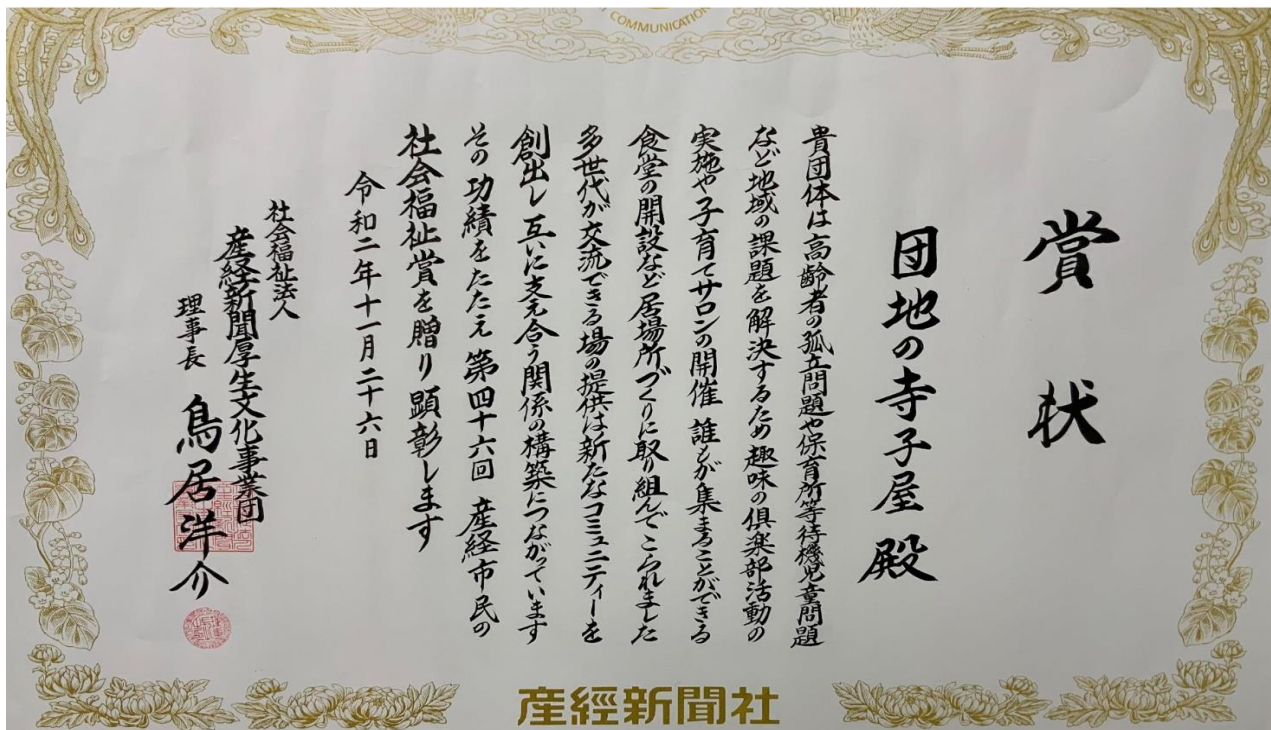 COMMUNICATION
賞状
団地の寺子屋 殿
貴団体は高齢者の孤立問題や保育所等待機児童問題
など地域の課題を解決するため 趣味の倶楽部活動の
実施や子育てサロンの開催 誰もが集まることができる
食堂の開設など居場所づくりに取り組んでこられました
多世代が交流できる場の提供は新たなコミュニティーを
創出し 互いに支え合う関係の構築につながっています
その功績をたたえ 第四十六回 産経市民の
社会福祉賞を贈り 顕彰します
令和二年十一月二十六日
社会福祉法人
産経新聞厚生文化事業団
理事長 鳥居洋介
産經新聞社